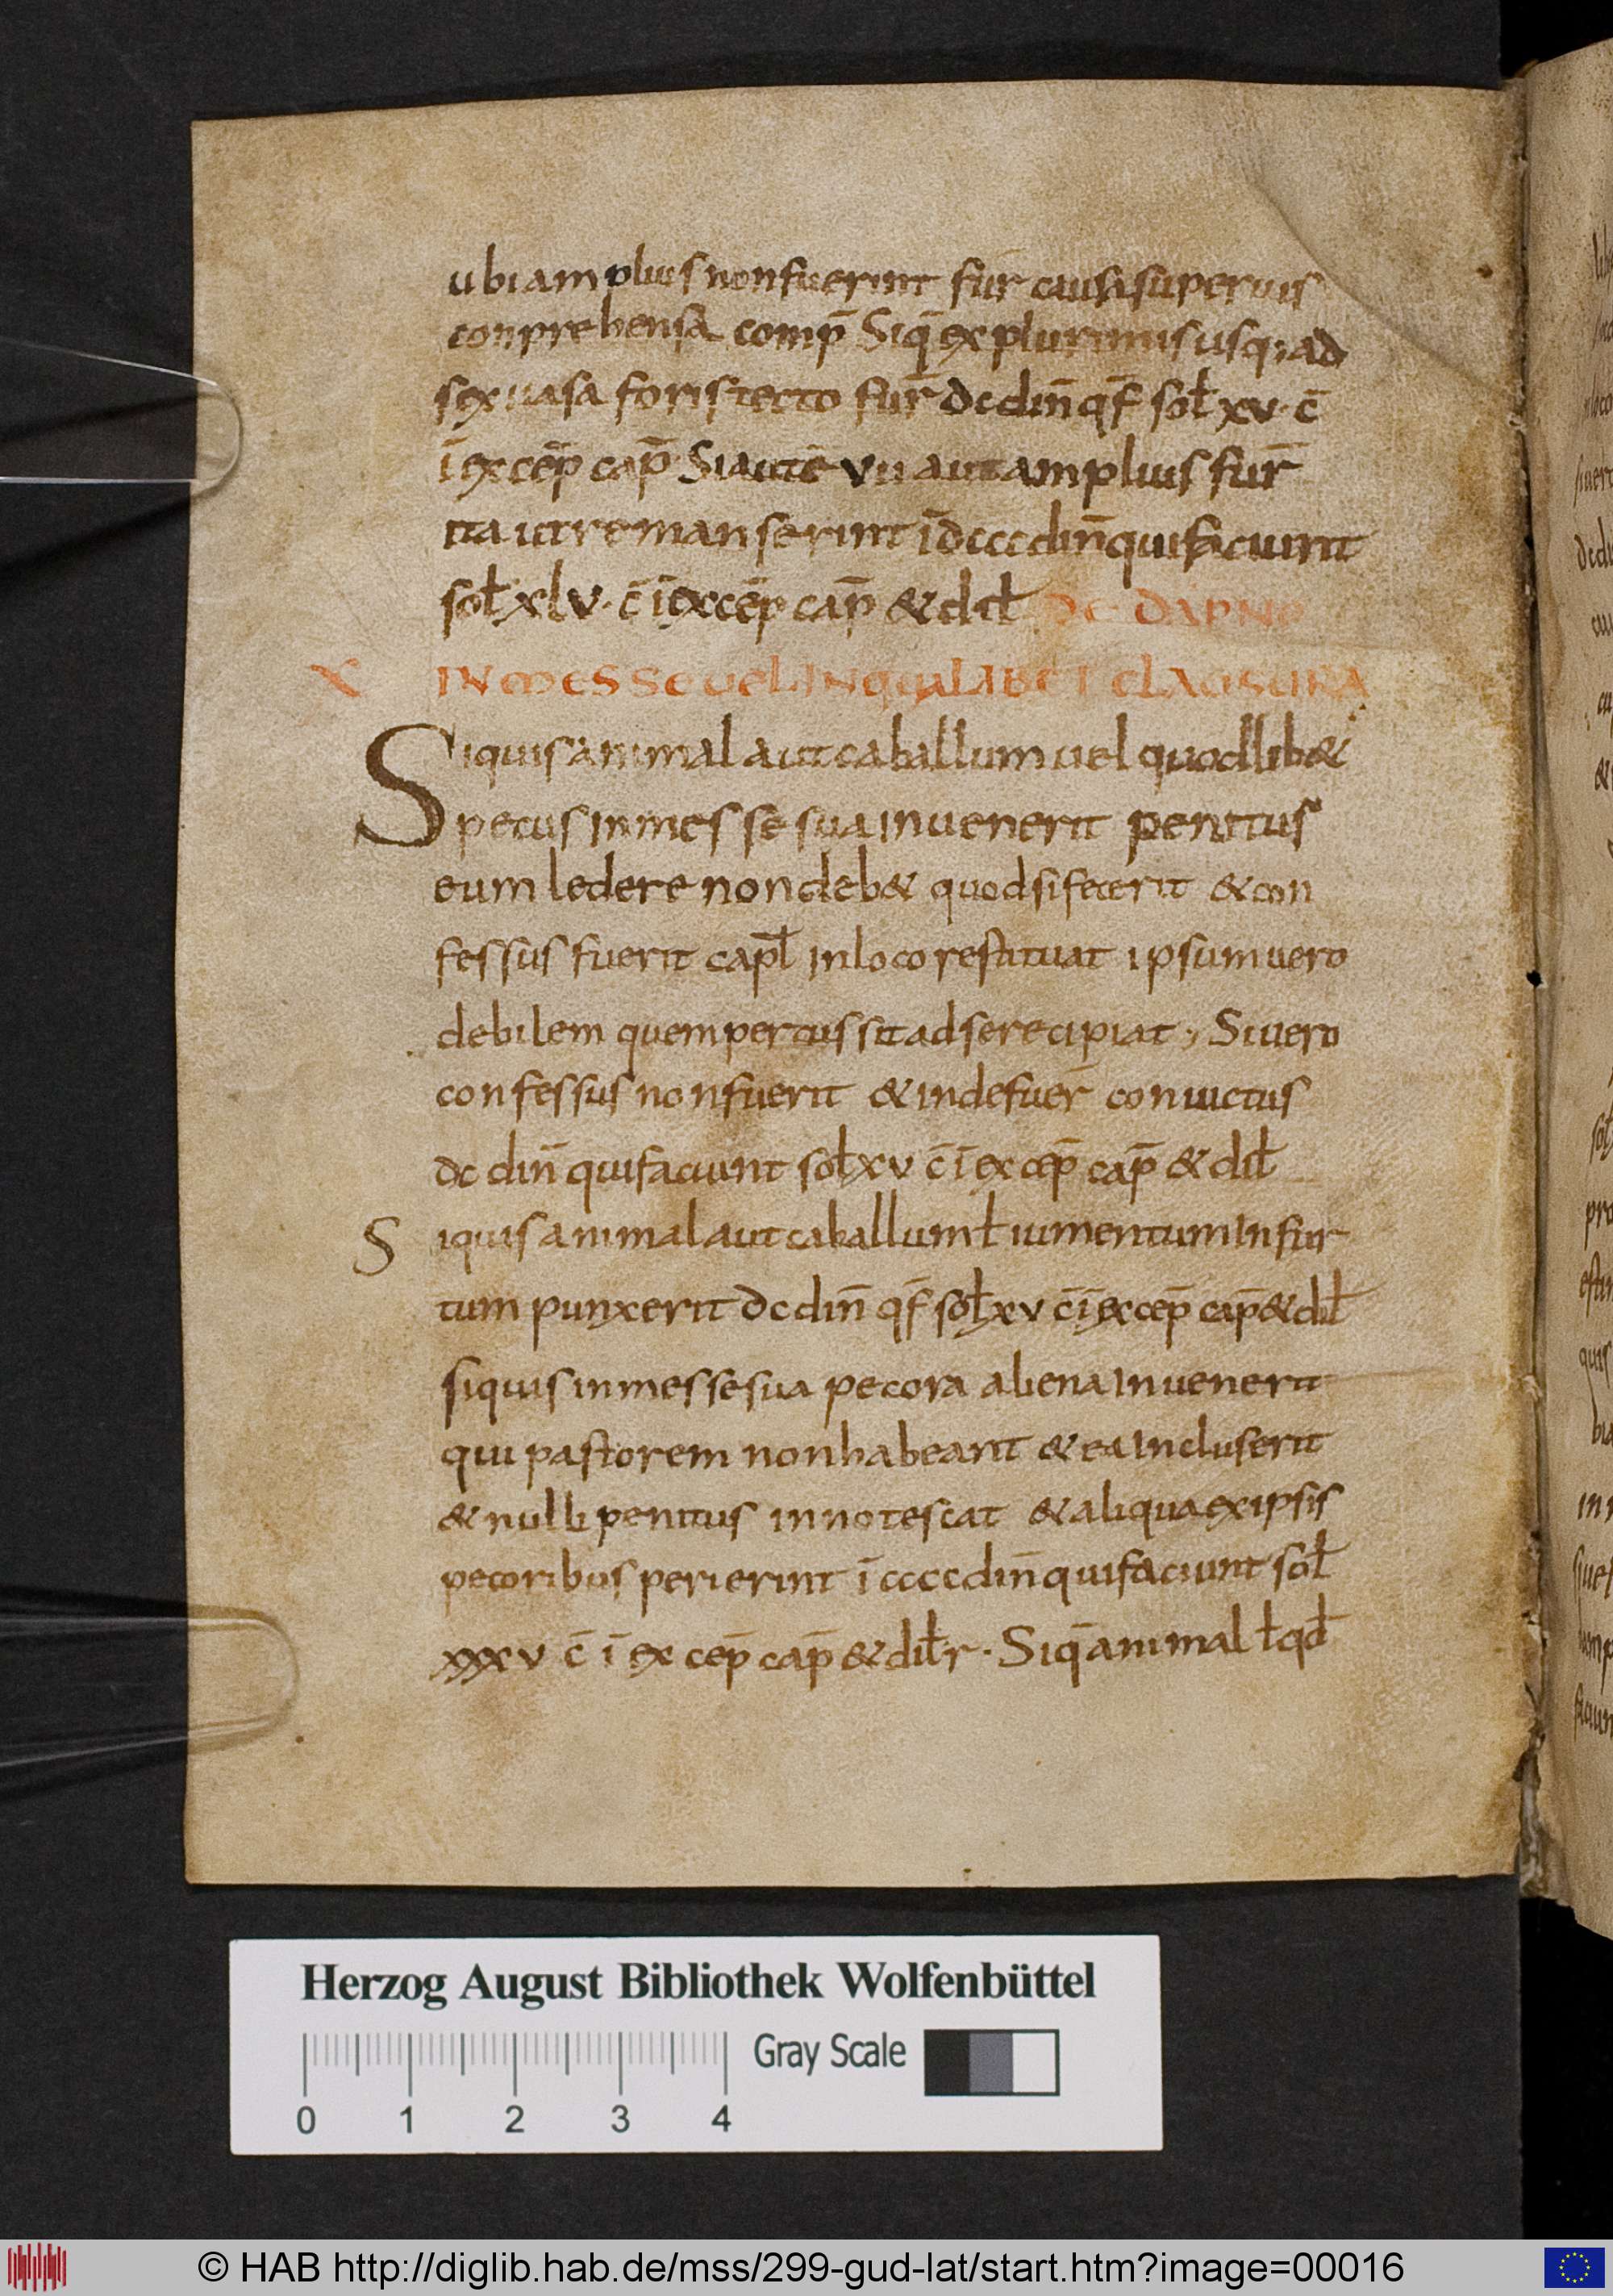 ubi amplius non fuerint fur̄ causa superuis
conprehensa comp̄ Siq̄ ex plurimis usq; ad
sex uasa foris tecto fur̄ dc din̄ qf̄ sol̄ xv · c̄
ī excep̄ cap̄ Si autē vii aut amplius fur̄
ita ut remanserint ī dccc din̄ qui faciunt
sol̄ xlv · c̄ ī excep̄ cap̄ & dil̄ DE DAPNO
X IN MESSE UEL IN QUALIBET CLAUSURA
Si quis animal aut caballum uel quodlib&
pecus in messe sua inuenerit penitus
eum ledere non deb& quod si fecerit & con
fessus fuerit capl̄ in loco restituat ipsum uero
debilem quem percussit ad se recipiat ; Si uero
confessus non fuerit & inde fuer̄ conuictus
dc din̄ qui faciunt sol̄ xv c̄ ī excep̄ cap̄ & dil̄
Si quis animal aut caballum ł iumentum in fur
tum punxerit dc din̄ qf̄ sol̄ xv c̄ ī excep̄ cap̄ & dil̄
si quis in messe sua pecora aliena inuenerit
qui pastorem non habeant & ea incluserit
& nulli penitus innotescat & aliqua ex ipsis
pecoribus perierint ī cccc din̄ qui faciunt sol̄
xxxv c̄ ī excep̄ cap̄ & dil̄r · Siq̄ animal ł qd̄
Herzog August Bibliothek Wolfenbüttel
Gray Scale
0 1 2 3 4
© HAB http://diglib.hab.de/mss/299-gud-lat/start.htm?image=00016